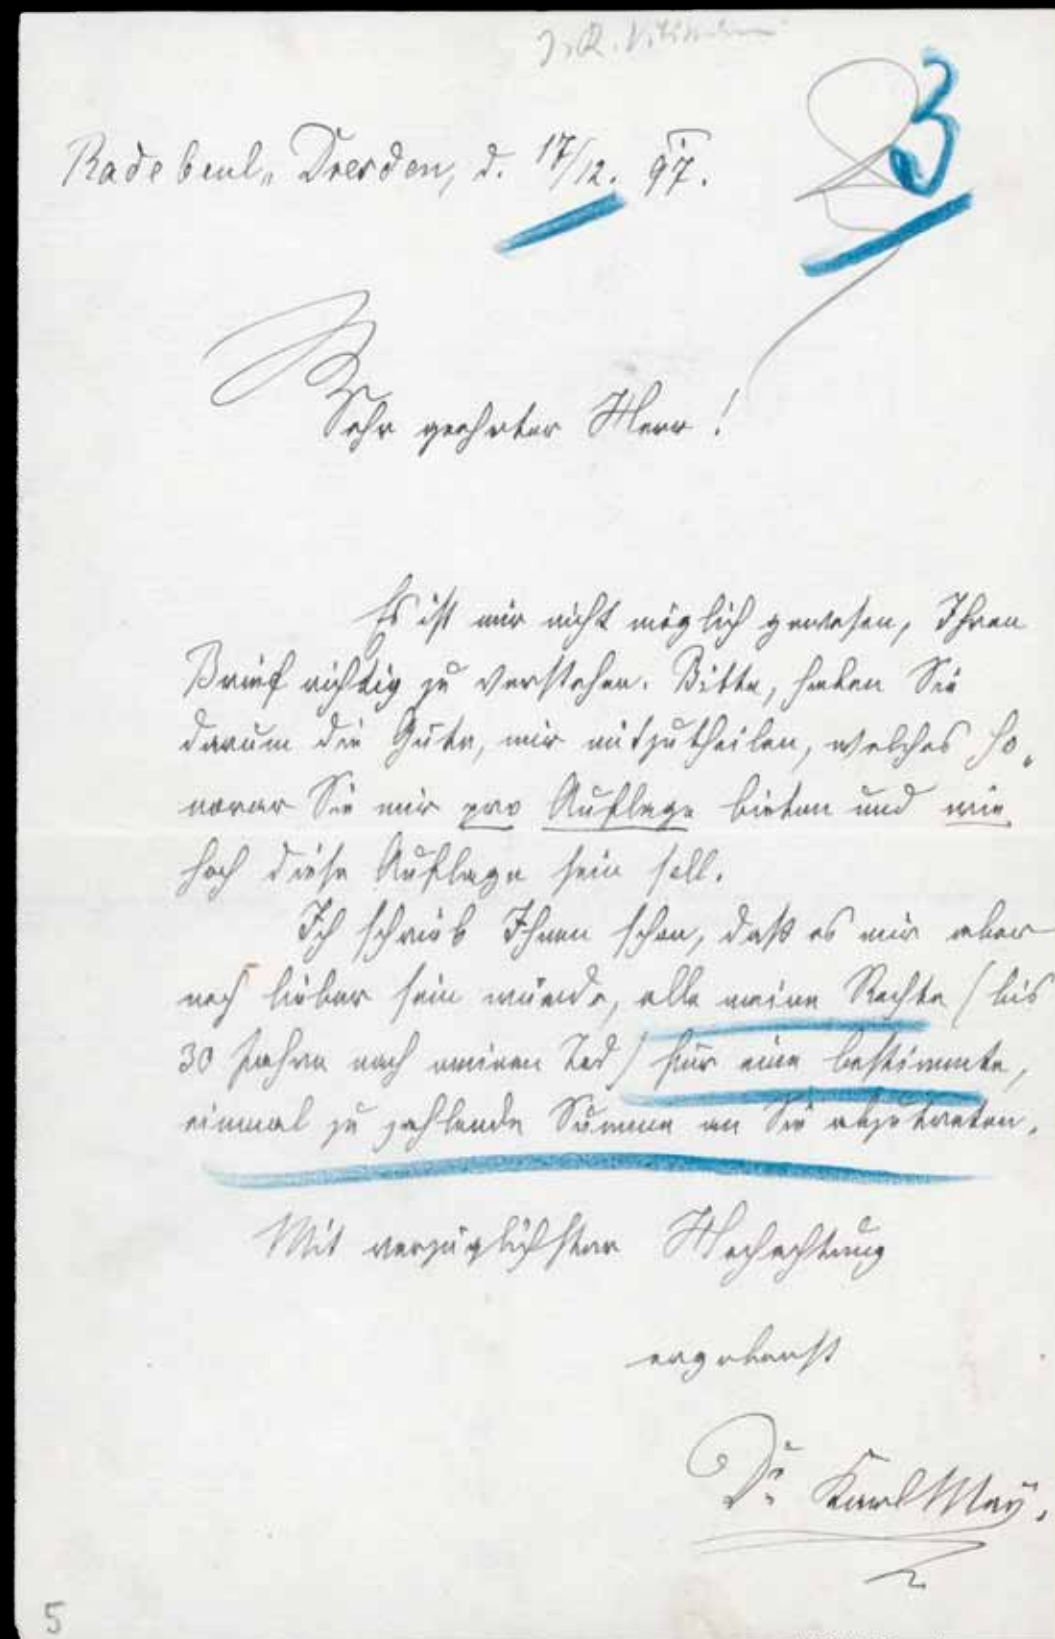 3
Radebeul-Dresden, d. 17/12. 97.
Sehr geehrter Herr!
Es ist mir nicht möglich gewesen, Ihren
Brief richtig zu verstehen. Bitte, haben Sie
darum die Güte, mir mitzutheilen, welches Ho-
norar Sie mir pro Auflage bieten und wie
hoch diese Auflage sein soll.
Ich schrieb Ihnen schon, daß es mir aber
noch lieber sein würde, alle meine Rechte (bis
30 Jahre nach meinem Tod) für eine bestimmte,
einmal zu zahlende Summe an Sie abzutreten.
Mit vorzüglichster Hochachtung
ergebenst
Dr. Karl May.
5